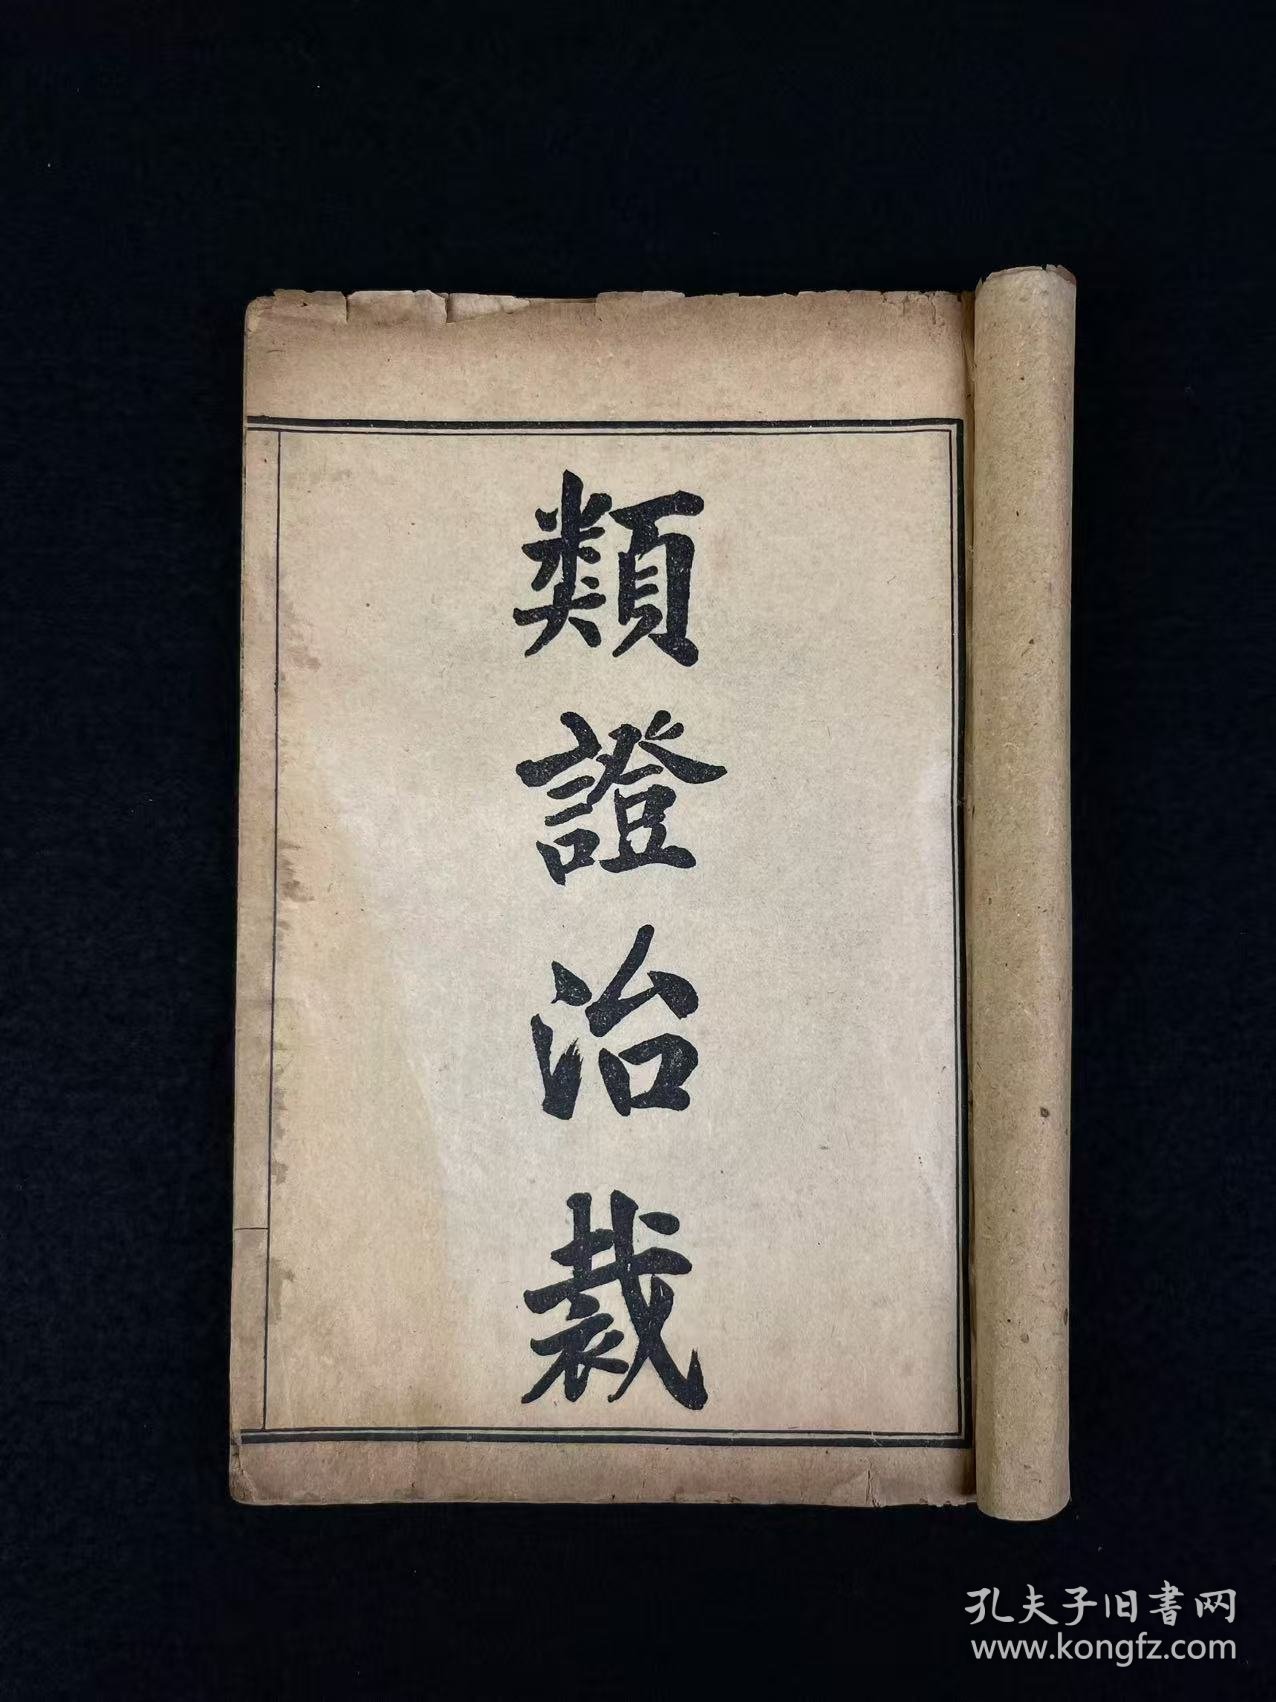 類證治裁
孔夫子旧書网
www.kongfz.com